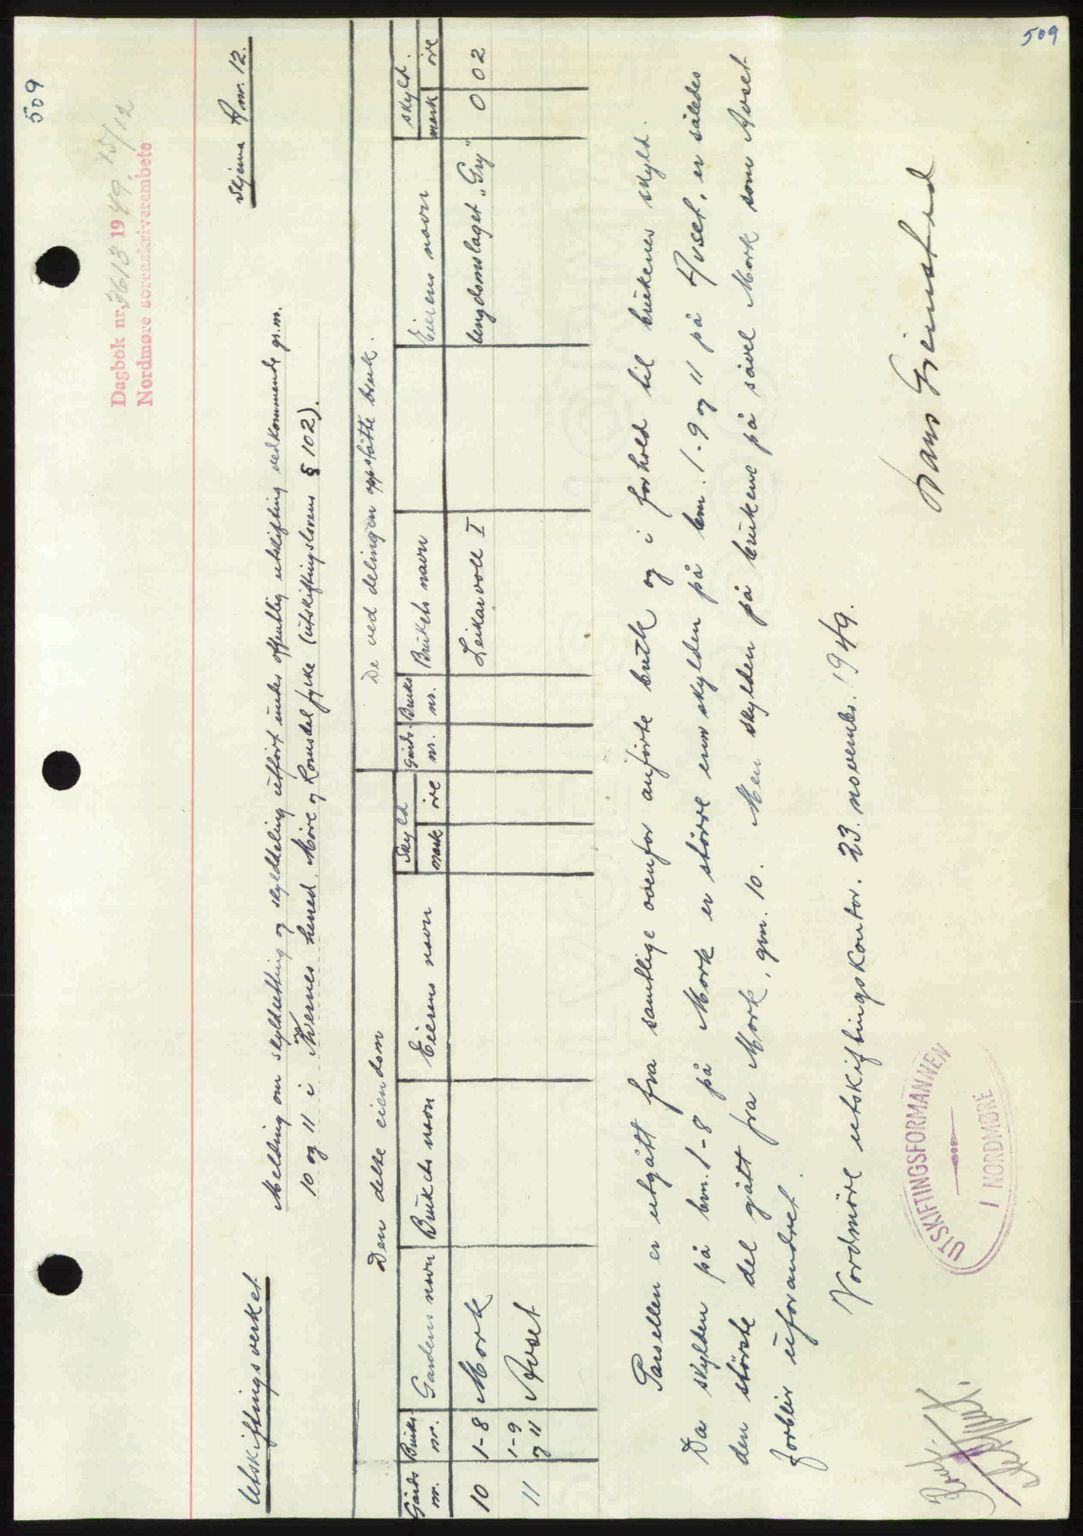 509
509
Dagbok nr. 3613 1949. 15/12
Nordmøre sorenskriverembete
Utskiftingsverket
Skjema A nr. 12.
Melding om skyldsetting og skylddeling utført under offentlig utskifting vedkommende gr.m.
10 og 11 i Øvernes herred, Møre og Romsdal fylke (utskiftingslovens § 102).
Den delte eiendom
De ved delingen oppståtte bruk.
Gårds nr.
Bruks nr.
Gardens navn
Brukets navn
Eierens navn
Skyld
mark
øre
Gårds nr.
Bruks nr.
Brukets navn
Eierens navn
Skyld.
mark
øre
10 1-8 Mork
Leikarvoll I
Ungdomslaget "Gry"
0 02
11 1-9 og 11 Avset
Parsellen er utgått fra samtlige ovenfor anførte bruk og i forhold til brukenes skyld.
Da skylden på bnr. 1-8 på Mork er større enn skylden på bnr. 1-9 og 11 på Avset, er således
den største del gått fra Mork, gnr. 10. Men skylden på brukene på såvel Mork som Avset
forblir uforandret.
Nordmøre utskiftingskontor. 23. november 1949.
Hans Grimstad
UTSKIFTINGSFORMANNEN
I NORDMØRE